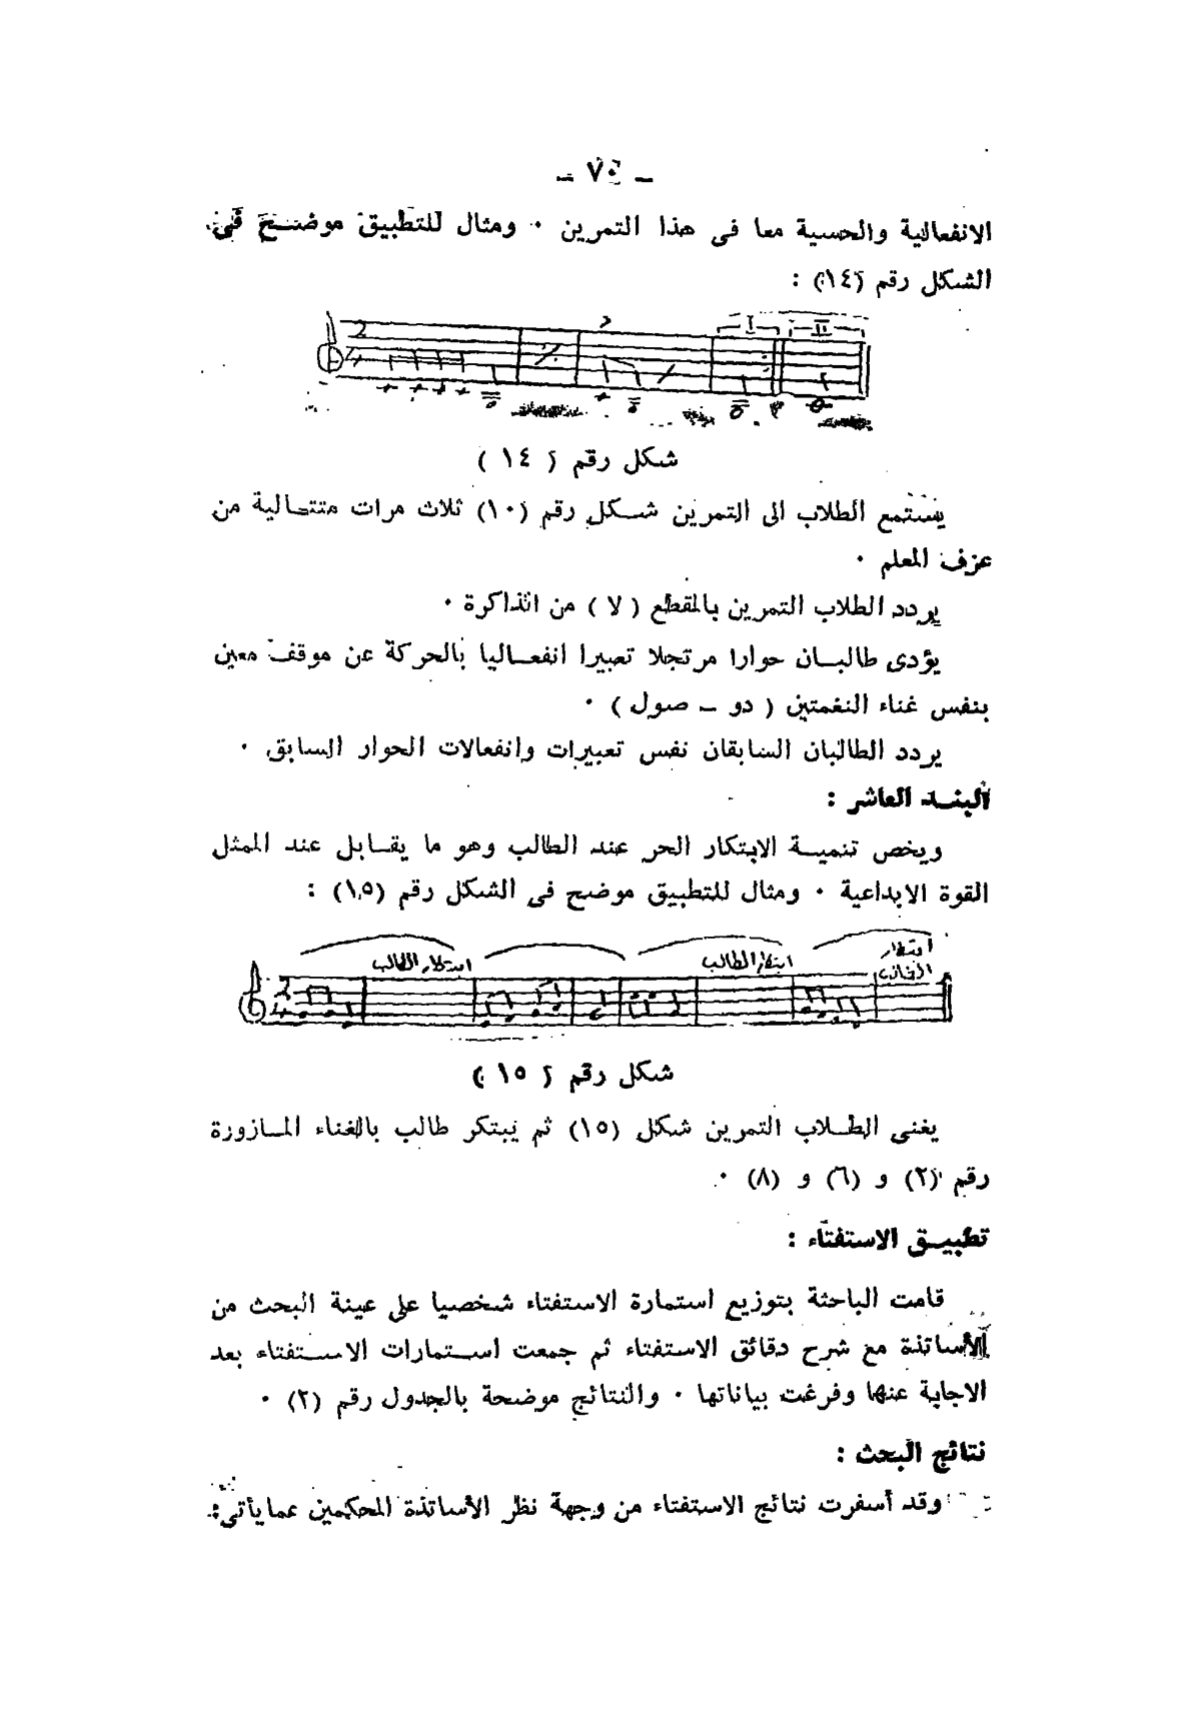 الانفعالية والحسية معا فى هذا التمرين ٠ ومثال للتطبيق موضح فى
الشكل رقم (١٤) :
I II
شكل رقم ( ١٤ )
يستمع الطلاب الى التمرين شكل رقم (١٠) ثلاث مرات متتالية من
عزف المعلم ٠
يردد الطلاب التمرين بالمقطع ( لا ) من الذاكرة ٠
يؤدى طالبان حوارا مرتجلا تعبيرا انفعاليا بالحركة عن موقف معين
بنفس غناء النغمتين ( دو ــ صول ) ٠
يردد الطالبان السابقان نفس تعبيرات وانفعالات الحوار السابق ٠
البند العاشر :
ويخص تنمية الابتكار الحر عند الطالب وهو ما يقابل عند الممثل
القوة الابداعية ٠ ومثال للتطبيق موضح فى الشكل رقم (١٥) :
ابتكار الطالب ابتكار الطالب ابتكار الطالب
شكل رقم ( ١٥ )
يغنى الطلاب التمرين شكل (١٥) ثم يبتكر طالب بالغناء المازورة
رقم (٢) و (٦) و (٨) ٠
تطبيق الاستفتاء :
قامت الباحثة بتوزيع استمارة الاستفتاء شخصيا على عينة البحث من
الأساتذة مع شرح دقائق الاستفتاء ثم جمعت استمارات الاستفتاء بعد
الاجابة عنها وفرغت بياناتها ٠ والنتائج موضحة بالجدول رقم (٢) ٠
نتائج البحث :
وقد أسفرت نتائج الاستفتاء من وجهة نظر الأساتذة المحكمين عما يأتى :